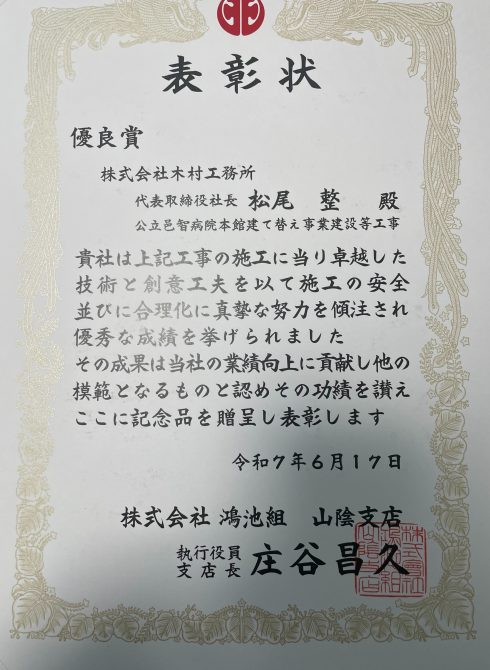 表彰状
優良賞
株式会社木村工務所
代表取締役社長 松尾 整 殿
公立邑智病院本館建て替え事業建設等工事
貴社は上記工事の施工に当り卓越した
技術と創意工夫を以て施工の安全
並びに合理化に真摯な努力を傾注され
優秀な成績を挙げられました
その成果は当社の業績向上に貢献し他の
模範となるものと認めその功績を讃え
ここに記念品を贈呈し表彰します
令和7年6月17日
株式会社 鴻池組 山陰支店
執行役員
支店長 庄谷昌久